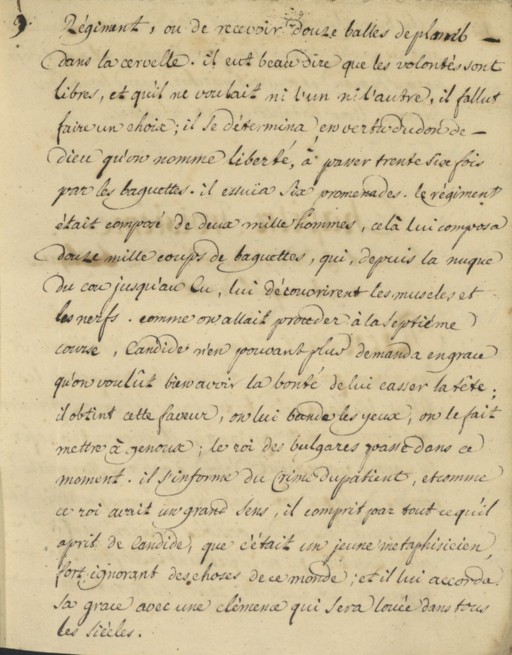 9. Régiment, ou de recevoir douze balles de plomb
dans la cervelle. il eut beau dire que les volontés sont
libres, et qu'il ne voulait ni l'un ni l'autre, il fallut
faire un choix; il se détermina, en vertu du don de
dieu qu'on nomme liberté, à passer trente six fois
par les baguettes. il essuïa six promenades. le régiment
était composé de deux mille hommes, celà lui composa
douze mille coups de baguettes, qui, depuis la nuque
du cou jusqu'au Cu, lui découvrirent les muscles et
les nerfs. comme on allait proceder à la septiéme
course, Candide n'en pouvant plus demanda en grace
qu'on voulût bien avoir la bonté de lui casser la tête;
il obtint cette faveur, on lui bande les yeux, on le fait
mettre à genoux; le roi des bulgares passe dans ce
moment. il s'informe du Crime du patient, et comme
ce roi avait un grand sens, il comprit par tout ce qu'il
aprit de Candide, que c'était un jeune metaphisicien,
fort ignorant des choses de ce monde; et il lui accorda
sa grace avec une clémence qui sera louée dans tous
les siécles.